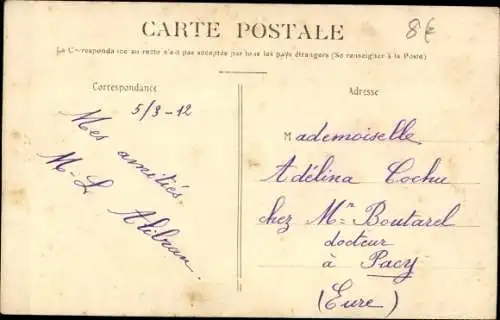 CARTE POSTALE
8€
La Correspondance au recto n'est pas acceptée par tous les pays étrangers (Se renseigner à la Poste)
Correspondance
5/3-12
Mes amitiés
M-L Alibran.
Adresse
Mademoiselle
Adélina Cochu
chez Mr Boutarel
docteur
à Pacy
(Eure)